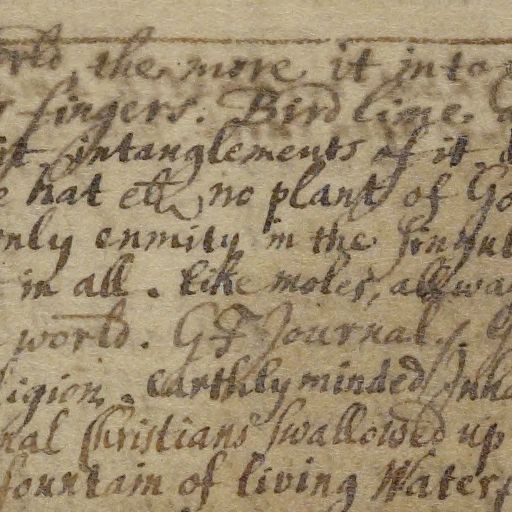 orld, the more it into
fingers. Bird lime,
it intanglements of it
e hat eth no plant of Go
nly enmity in the
in all. like moles, allwa
world. GF Journal.
ligion. earthly minded
nal Christians swallowed up
fountain of living Waters